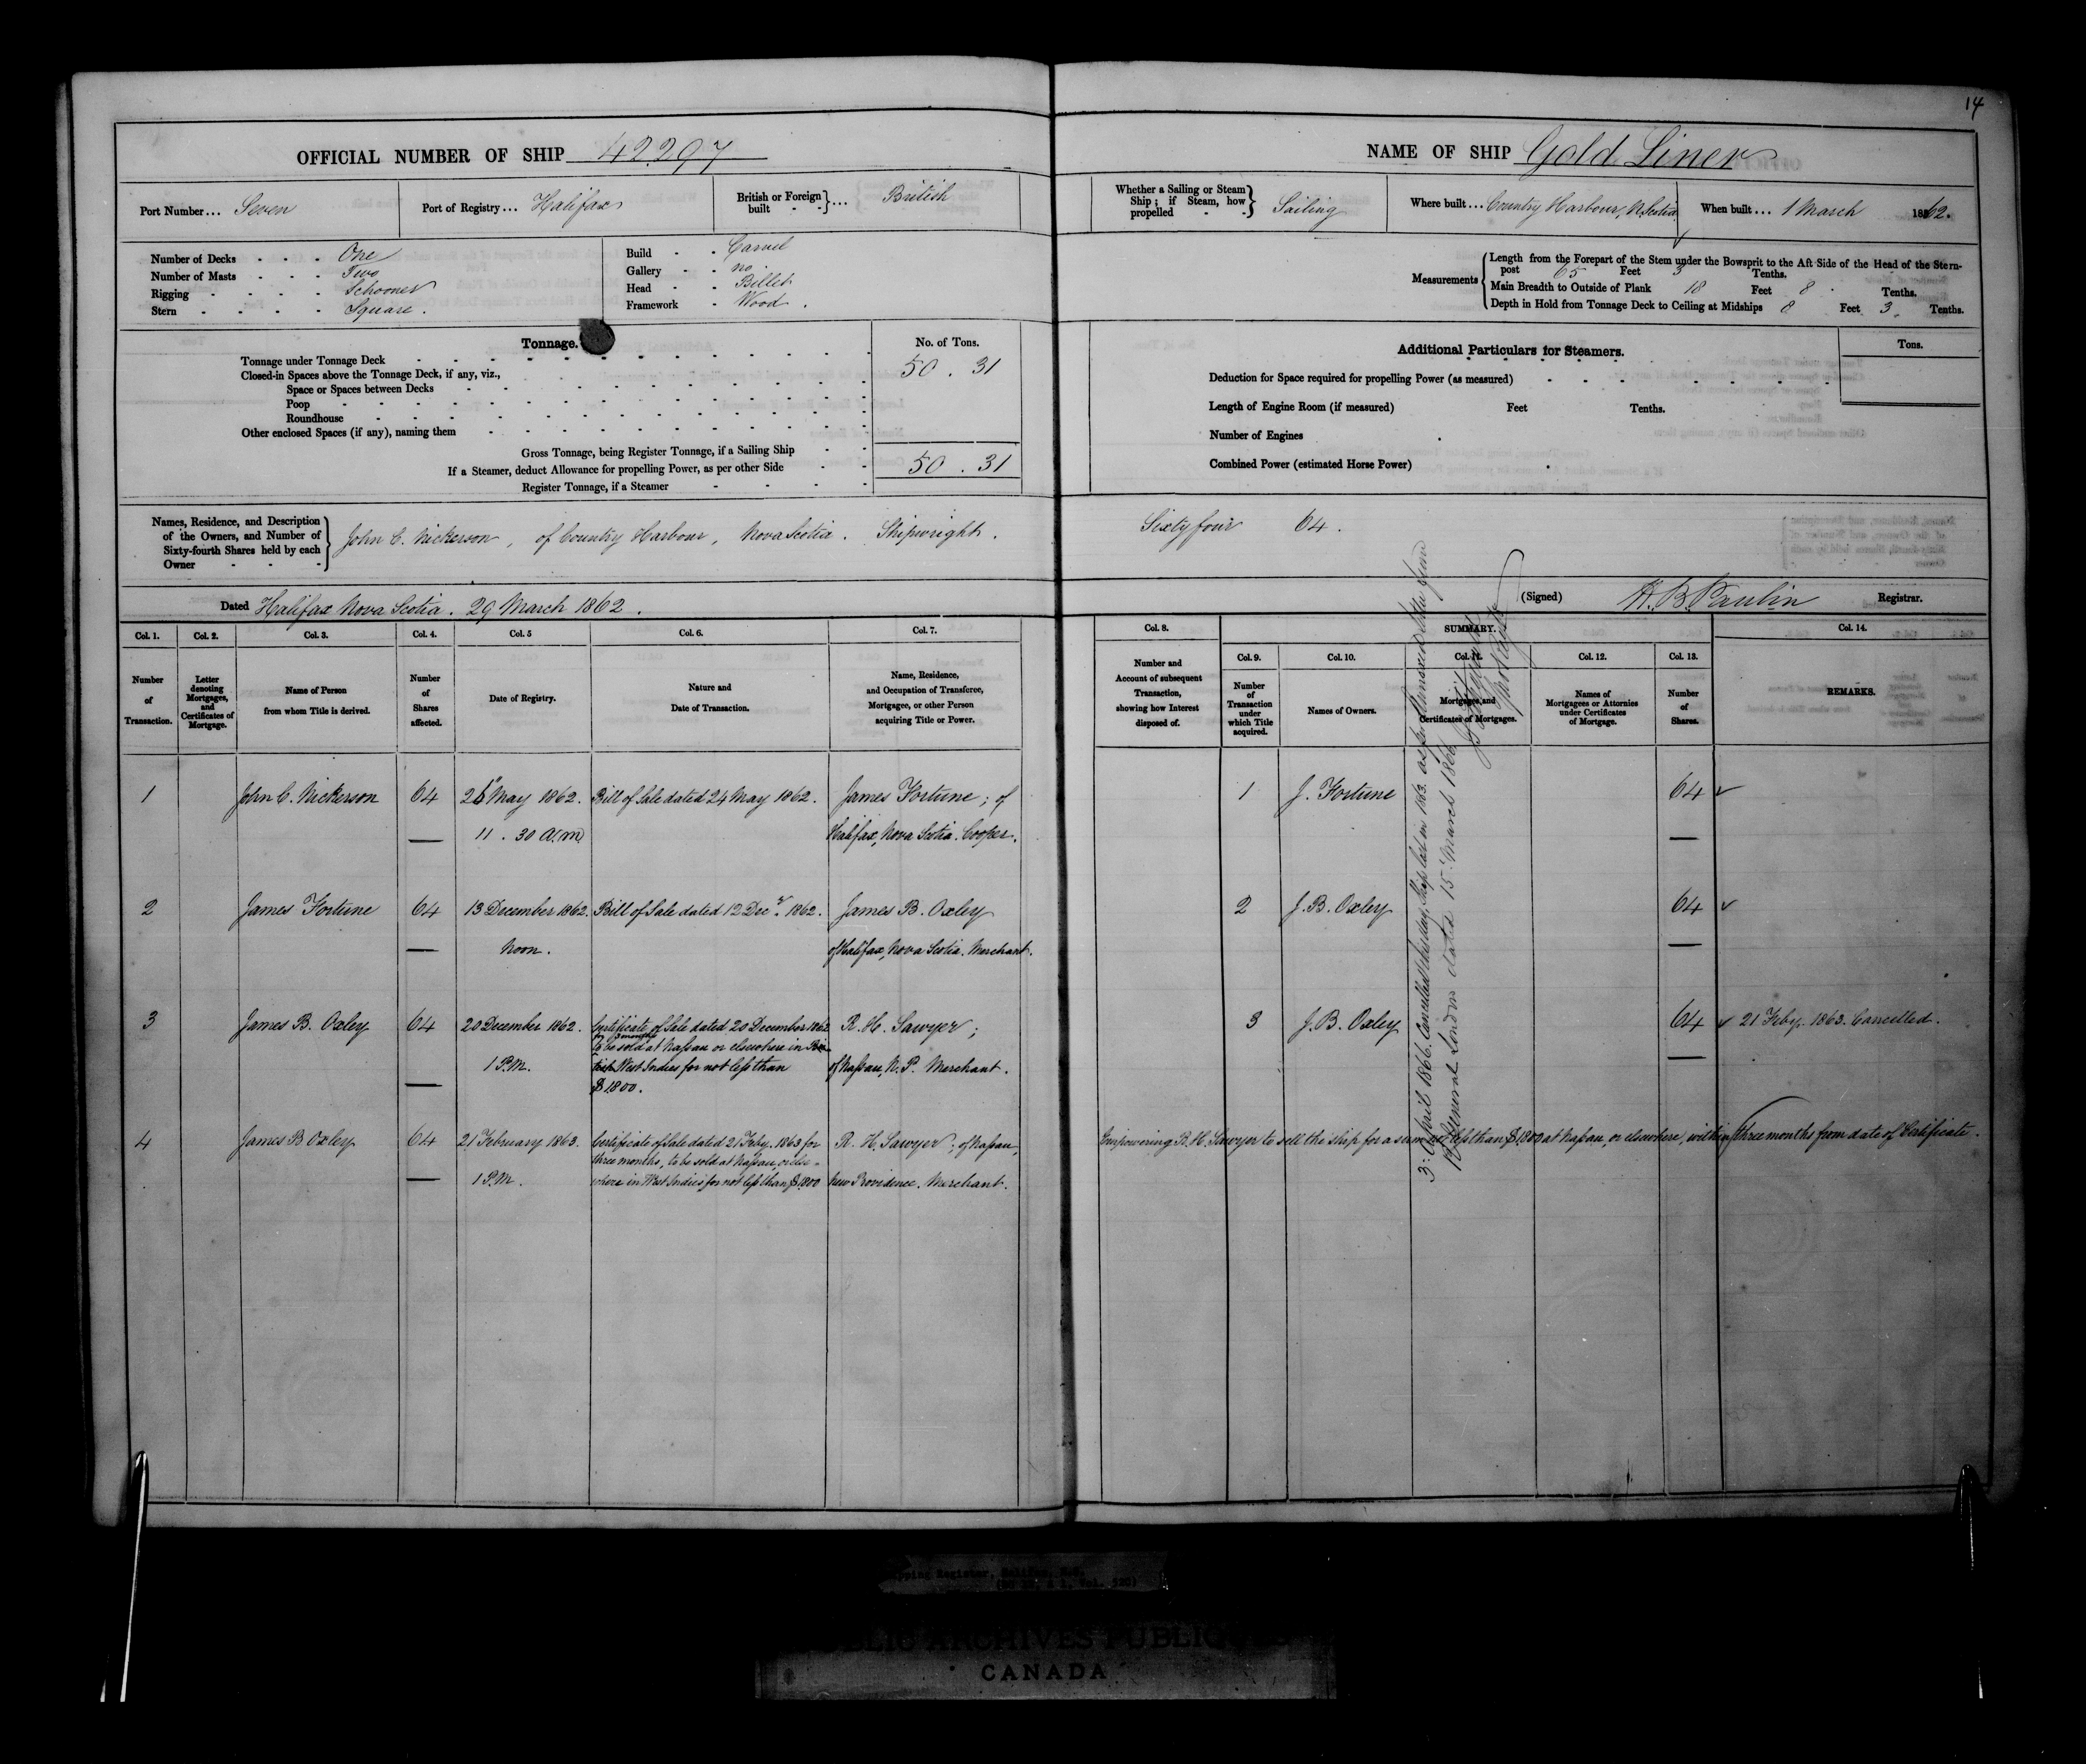 14
OFFICIAL NUMBER OF SHIP 42297
Port Number... Seven
Port of Registry... Halifax
British or Foreign built - - } ... British
Number of Decks - - - One
Number of Masts - - - Two
Rigging - - - - Schooner
Stern - - - - Square.
Build - - Carvel
Gallery - - no
Head - - Billet
Framework - Wood.
Tonnage.
No. of Tons.
Tonnage under Tonnage Deck 50 . 31
Closed-in Spaces above the Tonnage Deck, if any, viz.,
Space or Spaces between Decks
Poop
Roundhouse
Other enclosed Spaces (if any), naming them
Gross Tonnage, being Register Tonnage, if a Sailing Ship
If a Steamer, deduct Allowance for propelling Power, as per other Side 50 . 31
Register Tonnage, if a Steamer
Names, Residence, and Description
of the Owners, and Number of
Sixty-fourth Shares held by each
Owner
John C. Nickerson, of Country Harbour, Nova Scotia. Shipwright.
Dated Halifax Nova Scotia. 29 March 1862.
Col. 1. Col. 2. Col. 3. Col. 4. Col. 5 Col. 6. Col. 7.
Number of Transaction.
Letter denoting Mortgages, and Certificates of Mortgage.
Name of Person from whom Title is derived.
Number of Shares affected.
Date of Registry.
Nature and Date of Transaction.
Name, Residence, and Occupation of Transferee, Mortgagee, or other Person acquiring Title or Power.
1 John C. Nickerson 64 26 May 1862. Bill of Sale dated 24 May 1862. James Fortune; of
11 . 30 A.M. Halifax, Nova Scotia. Cooper.
2 James Fortune 64 13 December 1862. Bill of Sale dated 12 Decr. 1862. James B. Oxley
Noon. of Halifax, Nova Scotia. Merchant.
3 James B. Oxley 64 20 December 1862. Certificate of Sale dated 20 December 1862 R. H. Sawyer;
for 3 months
to be sold at Nassau or elsewhere in Bri-
1 P.M. tish West Indies for not less than of Nassau, N. P. Merchant.
$1800.
4 James B Oxley 64 21 February 1863. Certificate of Sale dated 21 Feby. 1863 for R. H. Sawyer; of Nassau,
three months, to be sold at Nassau, or else-
1 P.M. where in West Indies for not less than $1800 New Providence. Merchant.
NAME OF SHIP Gold Liner
Whether a Sailing or Steam
Ship; if Steam, how
propelled - - } Sailing
Where built... Country Harbour, N. Scotia
When built... 1 March 1862.
Measurements
Length from the Forepart of the Stem under the Bowsprit to the Aft Side of the Head of the Stern-
post 65 Feet 3 Tenths.
Main Breadth to Outside of Plank 18 Feet 8 Tenths.
Depth in Hold from Tonnage Deck to Ceiling at Midships 8 Feet 3. Tenths.
Additional Particulars for Steamers.
Tons.
Deduction for Space required for propelling Power (as measured)
Length of Engine Room (if measured) Feet Tenths.
Number of Engines
Combined Power (estimated Horse Power)
Sixty four 64.
(Signed) H. B. Paulin Registrar.
Col. 8. SUMMARY. Col. 14.
Col. 9. Col. 10. Col. 11. Col. 12. Col. 13.
Number and Account of subsequent Transaction, showing how Interest disposed of.
Number of Transaction under which Title acquired.
Names of Owners.
Mortgages and Certificates of Mortgages.
Names of Mortgagees or Attornies under Certificates of Mortgage.
Number of Shares.
REMARKS.
1 J. Fortune 64
2 J. B. Oxley 64
3 J. B. Oxley 64 21 Feby. 1863. Cancelled.
Empowering R. H. Sawyer to sell the ship for a sum not less than $1800 at Nassau, or elsewhere, within three months from date of Certificate.
3 April 1866. Cancelled this day, Ship lost in 1863. as per
General London dated 15 March 1866
pping Register, Halifax, N.S.
PUBLIC ARCHIVES PUBLIQUES
CANADA